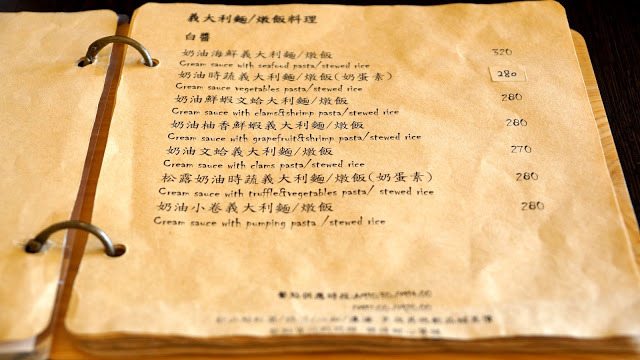 義大利麵/燉飯料理
白醬
奶油海鮮義大利麵/燉飯 320
Cream sauce with seafood pasta/stewed rice
奶油時蔬義大利麵/燉飯(奶蛋素) 280
Cream sauce vegetables pasta/stewed rice
奶油鮮蝦文蛤大利麵/燉飯 280
Cream sauce with clams&shrimp pasta/stewed rice
奶油柚香鮮蝦義大利麵/燉飯 280
Cream sauce with grapefruit&shrimp pasta/stewed rice
奶油文蛤義大利麵/燉飯 270
Cream sauce with clams pasta/stewed rice
松露奶油時蔬義大利麵/燉飯(奶蛋素) 280
Cream sauce with truffle&vegetables pasta/ stewed rice
奶油小卷義大利麵/燉飯 280
Cream sauce with pumping pasta /stewed rice
餐點供應時段: